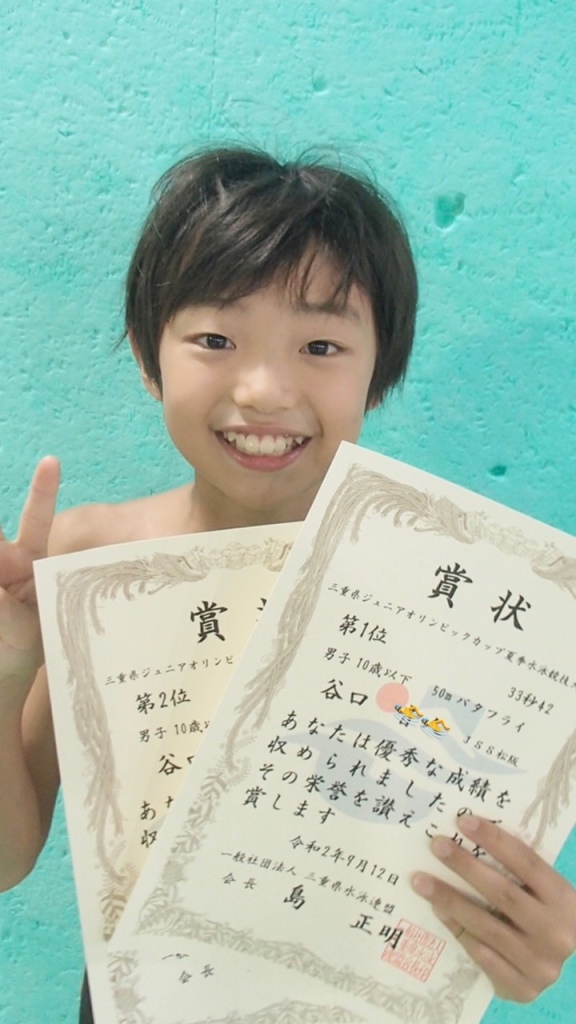 賞状
三重県ジュニアオリンピックカップ夏季水泳競技大
第1位
男子 10歳以下 50m バタフライ 33秒42
谷口 JSS松阪
あなたは優秀な成績を
収められましたので
その栄誉を讃えこれを
賞します
令和2年9月12日
一般社団法人 三重県水泳連盟
会長 島 正明
賞
三重県ジュニアオリンピ
第2位
男子 10歳以
谷口
あ
収
会長